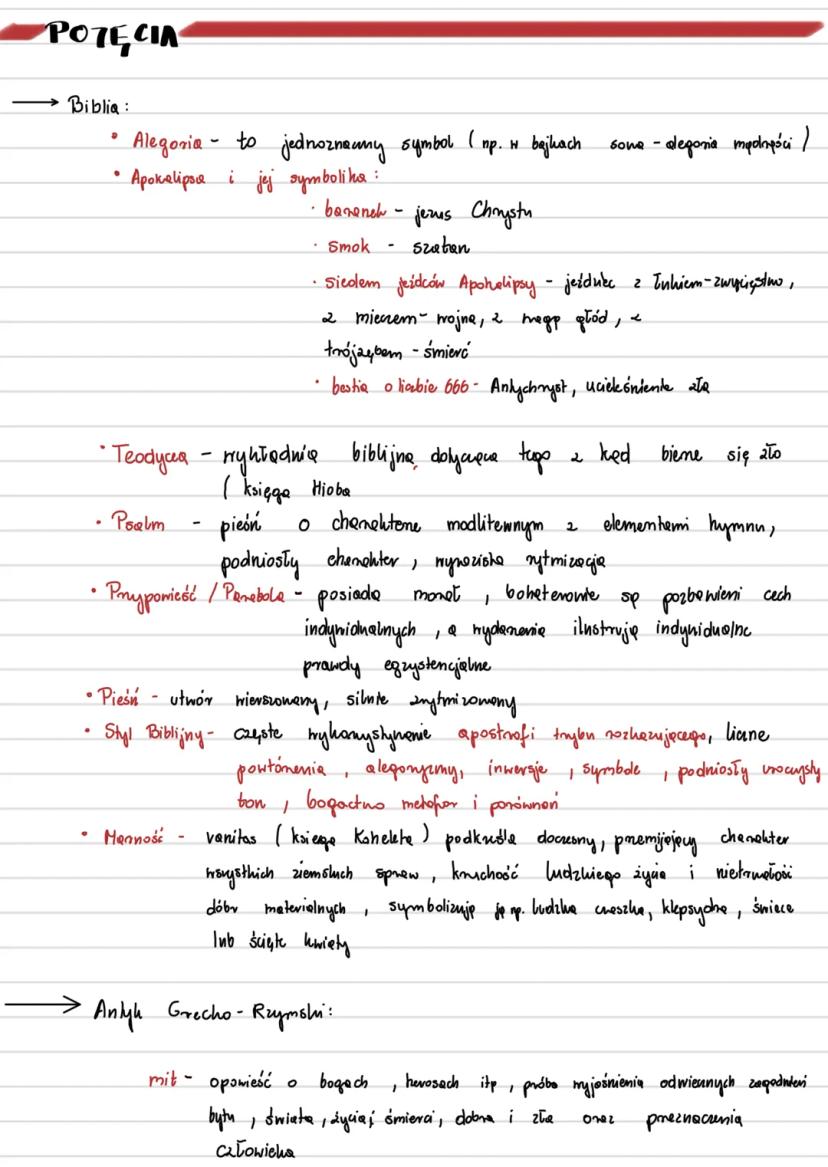 POJĘCIA
→ Biblia:
• Alegoria - to jednoznaczny symbol ( np. w bajkach sowa - alegoria mądrości )
• Apokalipsa i jej symbolika:
• baranek - jezus Chrystu
• smok - szatan
• siedem jeźdców Apokalipsy - jeździec z łukiem - zwycięstwo,
z mieczem - wojna, z wagą głód, z
trójzębem - śmierć
• bestia o liczbie 666 - Antychryst, ucieleśnienie zła
• Teodycea - wykładnia biblijna dotycząca tego z kąd bierze się zło
( księga Hioba
• Psalm - pieśń o charakterze modlitewnym z elementami hymnu,
podniosły charakter, wyrazista rytmizacja
• Przypowieść / Parabola - posiada morał, bohaterowie są pozbawieni cech
indywidualnych, a wydarzenia ilustrują indywidualne
prawdy egzystencjalne
• Pieśń - utwór wierszowany, silnie zrytmizowany
• Styl Biblijny - częste wykorzystywanie apostrofi trybu rozkazującego, liczne
powtórzenia, alegoryzmy, inwersje, symbole, podniosły uroczysty
ton, bogactwo metafor i porównań
• Marność - vanitas ( księga Koheleta ) podkreśla doczesny, przemijający charakter
wszystkich ziemskich spraw, kruchość ludzkiego życia i nietrwałości
dóbr materialnych, symbolizują ją np. ludzka czaszka, klepsydra, świeca
lub ścięte kwiaty
→ Antyk Grecko - Rzymski:
mit - opowieść o bogach, herosach itp, próba wyjaśnienia odwiecznych zagadnień
bytu, świata, życia i śmierci, dobra i zła oraz przeznaczenia
człowieka